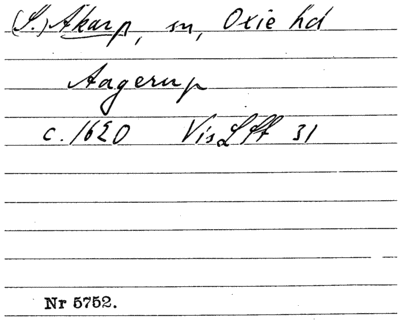 (S.) Åkarp, sn, Oxie hd
Aagerup
c. 1620 Vis Lft 31
Nr 5752.